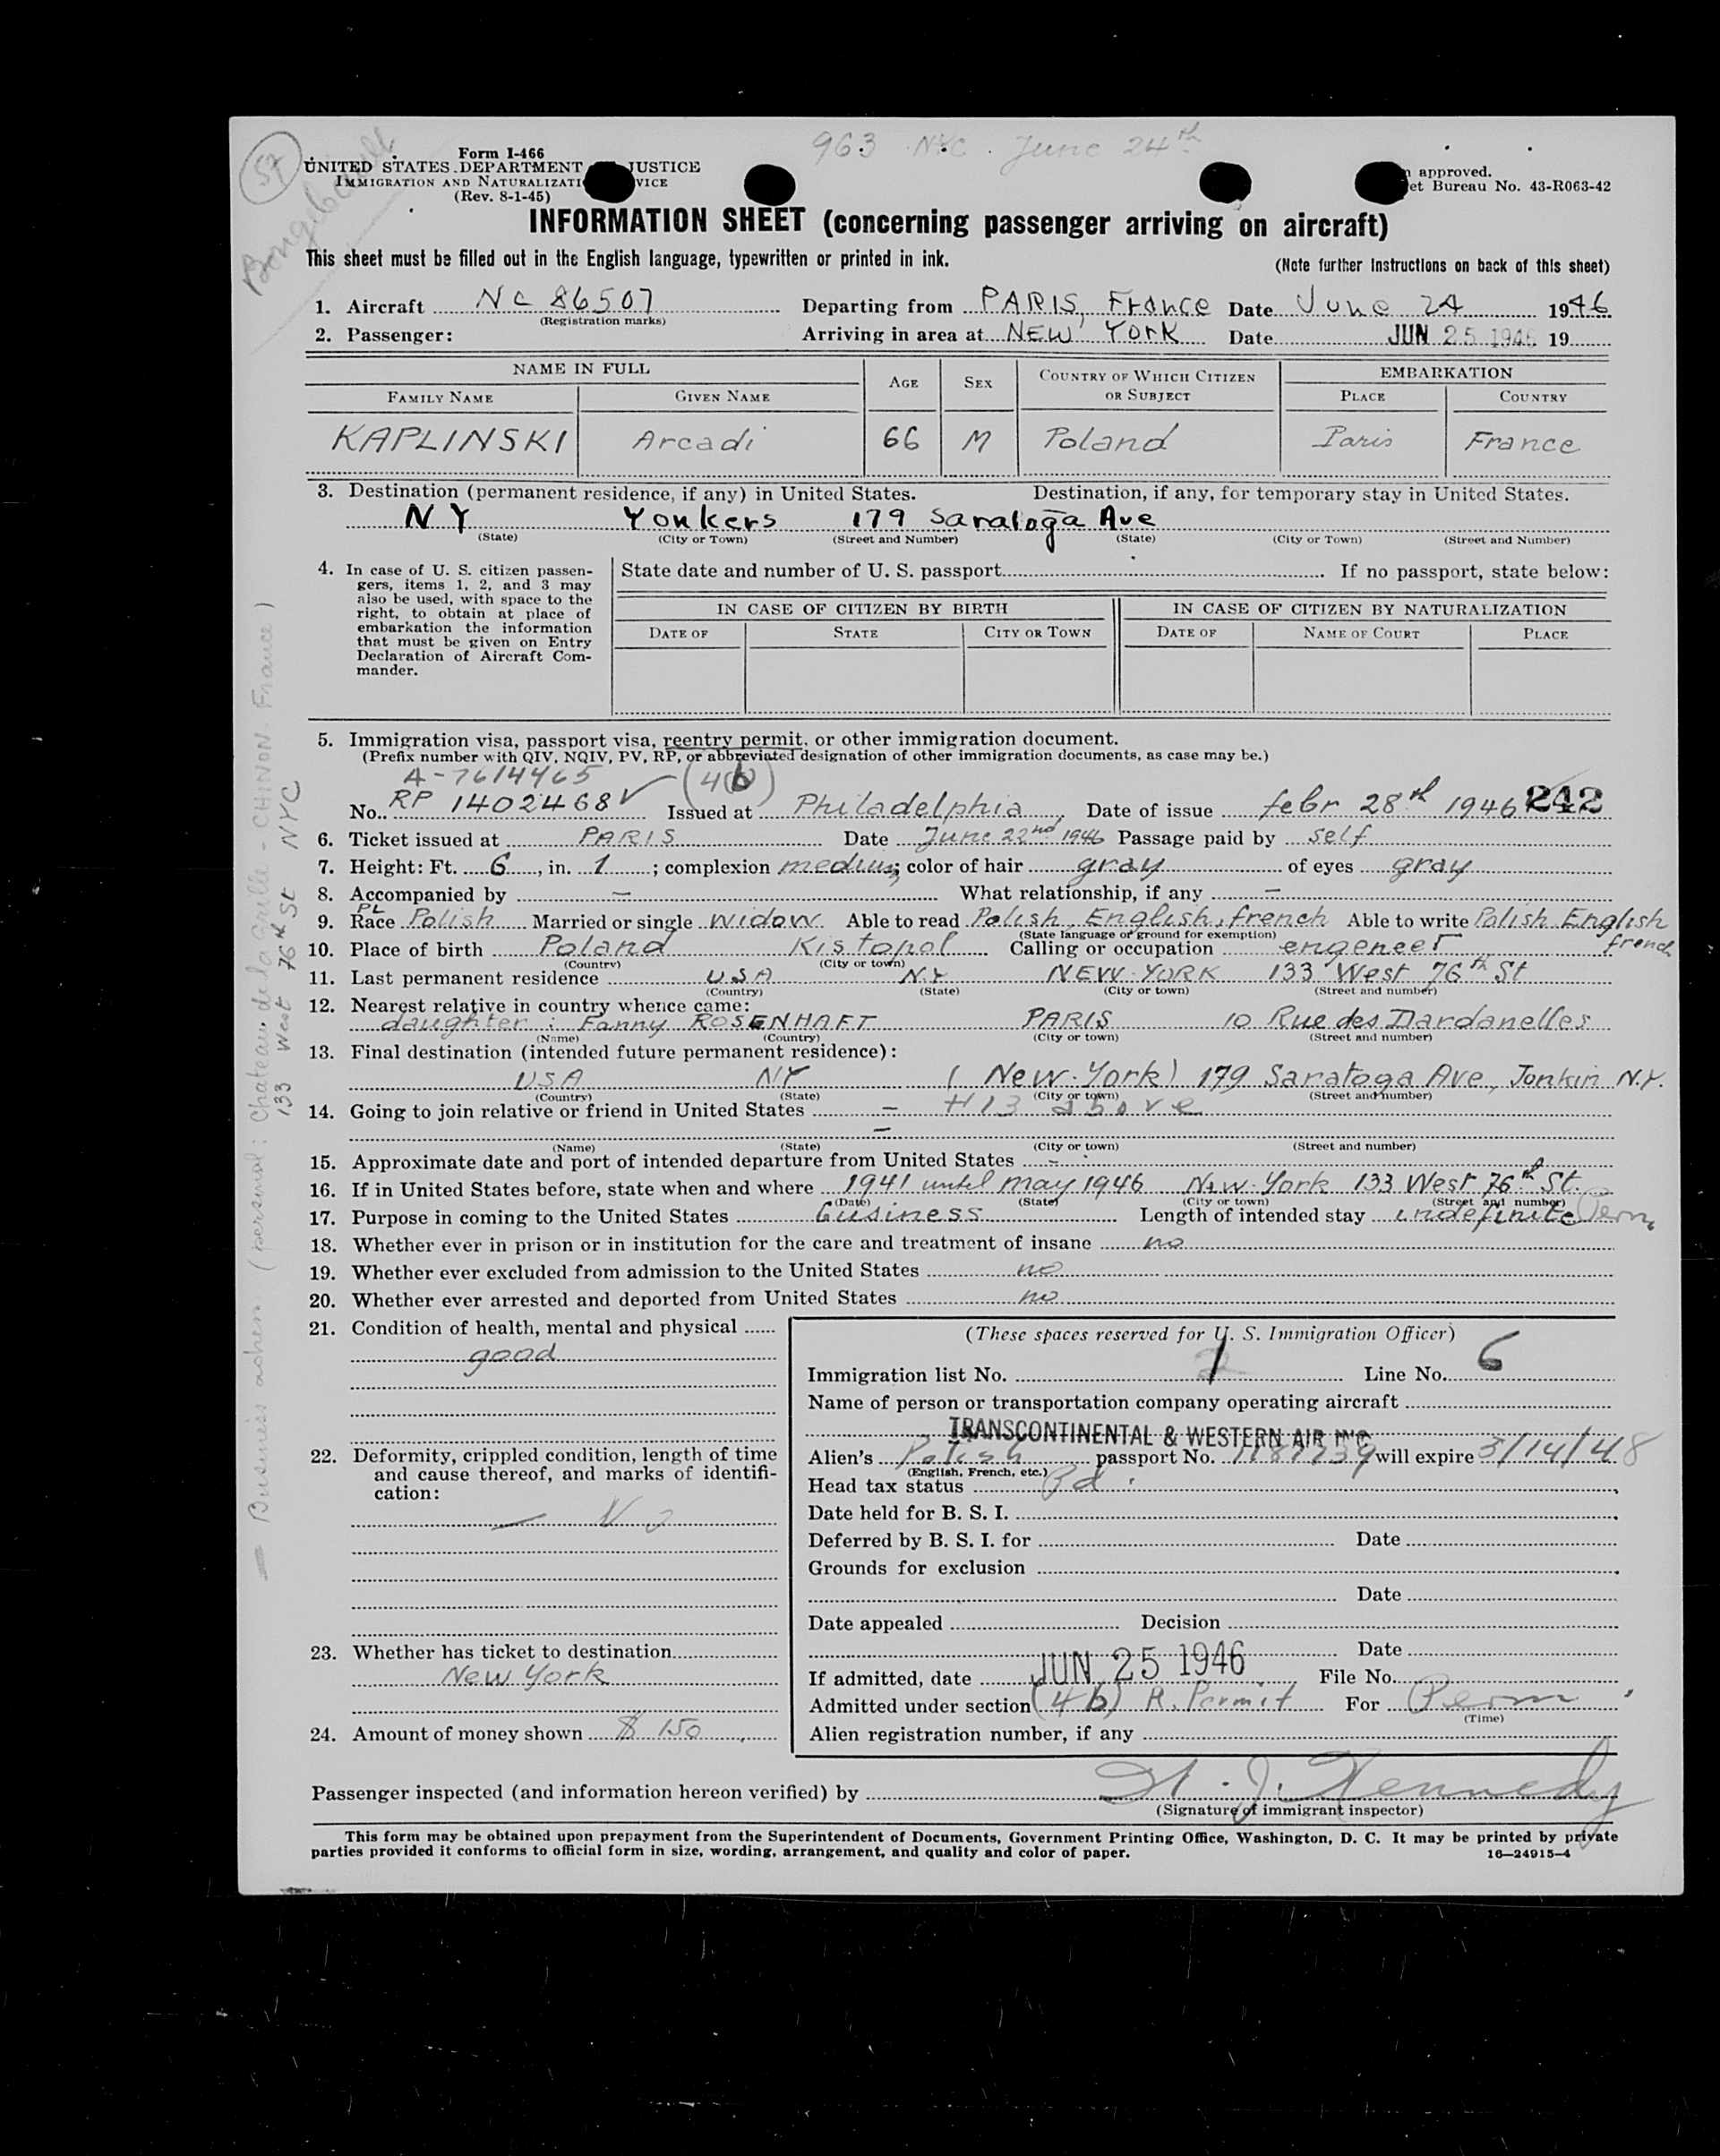 57
963 NYC. June 24th
Form I-466
UNITED STATES DEPARTMENT JUSTICE
IMMIGRATION AND NATURALIZATI VICE
(Rev. 8-1-45)
approved.
et Bureau No. 43-R063-42
INFORMATION SHEET (concerning passenger arriving on aircraft)
This sheet must be filled out in the English language, typewritten or printed in ink.
(Note further instructions on back of this sheet)
1. Aircraft NC 86507 Departing from PARIS, France Date June 24 1946
(Registration marks)
2. Passenger: Arriving in area at NEW YORK Date JUN 25 1946 19
NAME IN FULL AGE SEX COUNTRY OF WHICH CITIZEN OR SUBJECT EMBARKATION
FAMILY NAME GIVEN NAME PLACE COUNTRY
KAPLINSKI Arcadi 66 M Poland Paris France
3. Destination (permanent residence, if any) in United States. Destination, if any, for temporary stay in United States.
NY Yonkers 179 Saratoga Ave
(State) (City or Town) (Street and Number) (State) (City or Town) (Street and Number)
4. In case of U. S. citizen passen-
gers, items 1, 2, and 3 may
also be used, with space to the
right, to obtain at place of
embarkation the information
that must be given on Entry
Declaration of Aircraft Com-
mander.
State date and number of U. S. passport If no passport, state below:
IN CASE OF CITIZEN BY BIRTH IN CASE OF CITIZEN BY NATURALIZATION
DATE OF STATE CITY OR TOWN DATE OF NAME OF COURT PLACE
5. Immigration visa, passport visa, reentry permit, or other immigration document.
(Prefix number with QIV, NQIV, PV, RP, or abbreviated designation of other immigration documents, as case may be.)
A-7614465 (4b)
No. RP 1402468 ✓ Issued at Philadelphia, Date of issue febr 28th 1946 242
6. Ticket issued at PARIS Date June 22nd 1946 Passage paid by self
7. Height: Ft. 6, in. 1; complexion medium; color of hair gray of eyes gray
8. Accompanied by – What relationship, if any –
PL
9. Race Polish Married or single widow Able to read Polish, English, french Able to write Polish English french
(State language or ground for exemption)
10. Place of birth Poland Kistopol Calling or occupation engeneer
(Country) (City or town)
11. Last permanent residence USA N.Y. NEW-YORK 133 West 76th St
(Country) (State) (City or town) (Street and number)
12. Nearest relative in country whence came:
daughter: Fanny ROSENHAFT PARIS 10 Rue des Dardanelles
(Name) (Country) (City or town) (Street and number)
13. Final destination (intended future permanent residence):
USA NY (New-York) 179 Saratoga Ave, Jonkin N.Y.
(Country) (State) (City or town) (Street and number)
14. Going to join relative or friend in United States – #13 above
–
(Name) (State) (City or town) (Street and number)
15. Approximate date and port of intended departure from United States –
16. If in United States before, state when and where 1941 until may 1946 New-York 133 West 76th St.
(Date) (State) (City or town) (Street and number)
17. Purpose in coming to the United States business Length of intended stay indefinite Perm.
18. Whether ever in prison or in institution for the care and treatment of insane no
19. Whether ever excluded from admission to the United States no
20. Whether ever arrested and deported from United States no
21. Condition of health, mental and physical
good
22. Deformity, crippled condition, length of time
and cause thereof, and marks of identifi-
cation:
– No
23. Whether has ticket to destination
New York
24. Amount of money shown $ 150
(These spaces reserved for U. S. Immigration Officer)
Immigration list No. 1 Line No. 6
Name of person or transportation company operating aircraft
TRANSCONTINENTAL & WESTERN AIR INC.
Alien's Polish passport No. will expire 3/14/48
(English, French, etc.)
Head tax status Pd.
Date held for B. S. I.
Deferred by B. S. I. for Date
Grounds for exclusion
Date
Date appealed Decision
Date
If admitted, date JUN 25 1946 File No.
Admitted under section (4b) R. Permit For Perm
(Time)
Alien registration number, if any
Passenger inspected (and information hereon verified) by J. Kennedy
(Signature of immigrant inspector)
This form may be obtained upon prepayment from the Superintendent of Documents, Government Printing Office, Washington, D. C. It may be printed by private
parties provided it conforms to official form in size, wording, arrangement, and quality and color of paper.
16—24915-4
Business (personal: Chateau de la Grille - CHINON. France)
133 West 76th St NYC